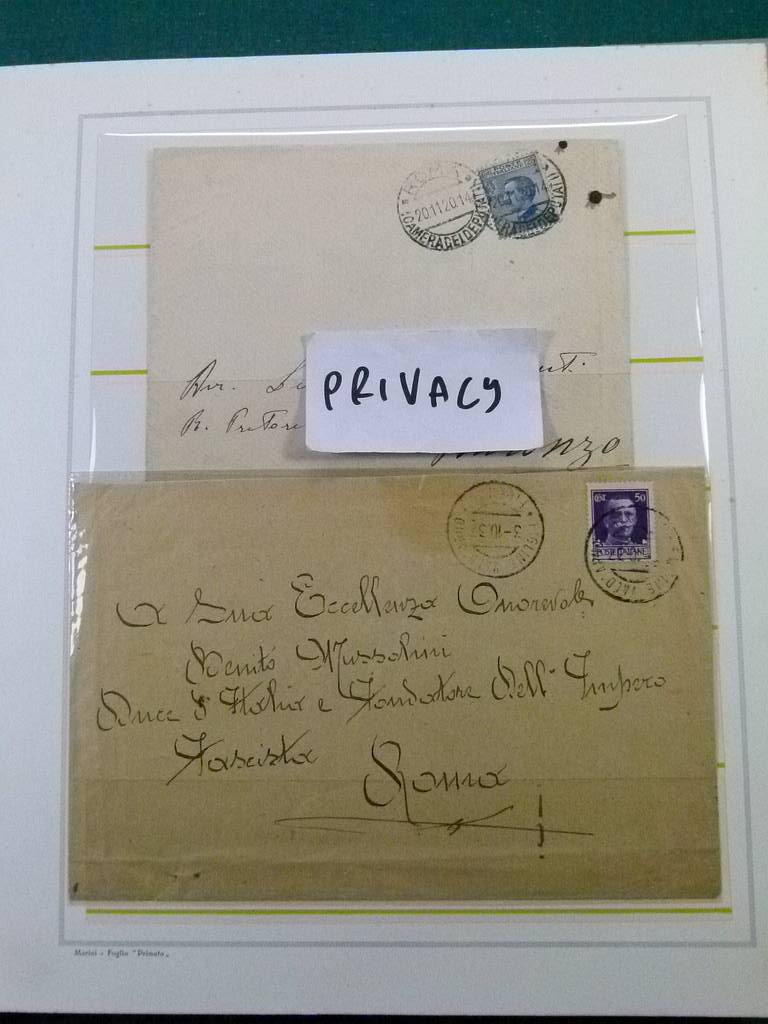 ROMA
20.11.20.14
CAMERA DEI DEPUTATI
PRIVACY
R. Pretore
3-10-3
50
POSTE ITALIANE
A Sua Eccellenza Onorevole
Benito Mussolini
Duce d'Italia e Fondatore Dell' Impero
Fascista Roma
Marini - Foglio "Primato„